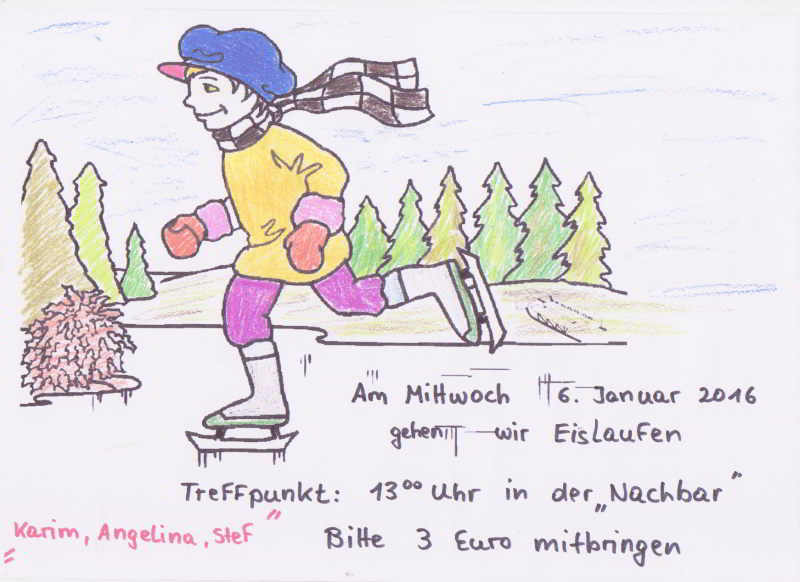 Am Mittwoch 6. Januar 2016
gehen wir Eislaufen
Treffpunkt: 13⁰⁰ Uhr in der „Nachbar"
Bitte 3 Euro mitbringen
"Karim, Angelina, Stef"